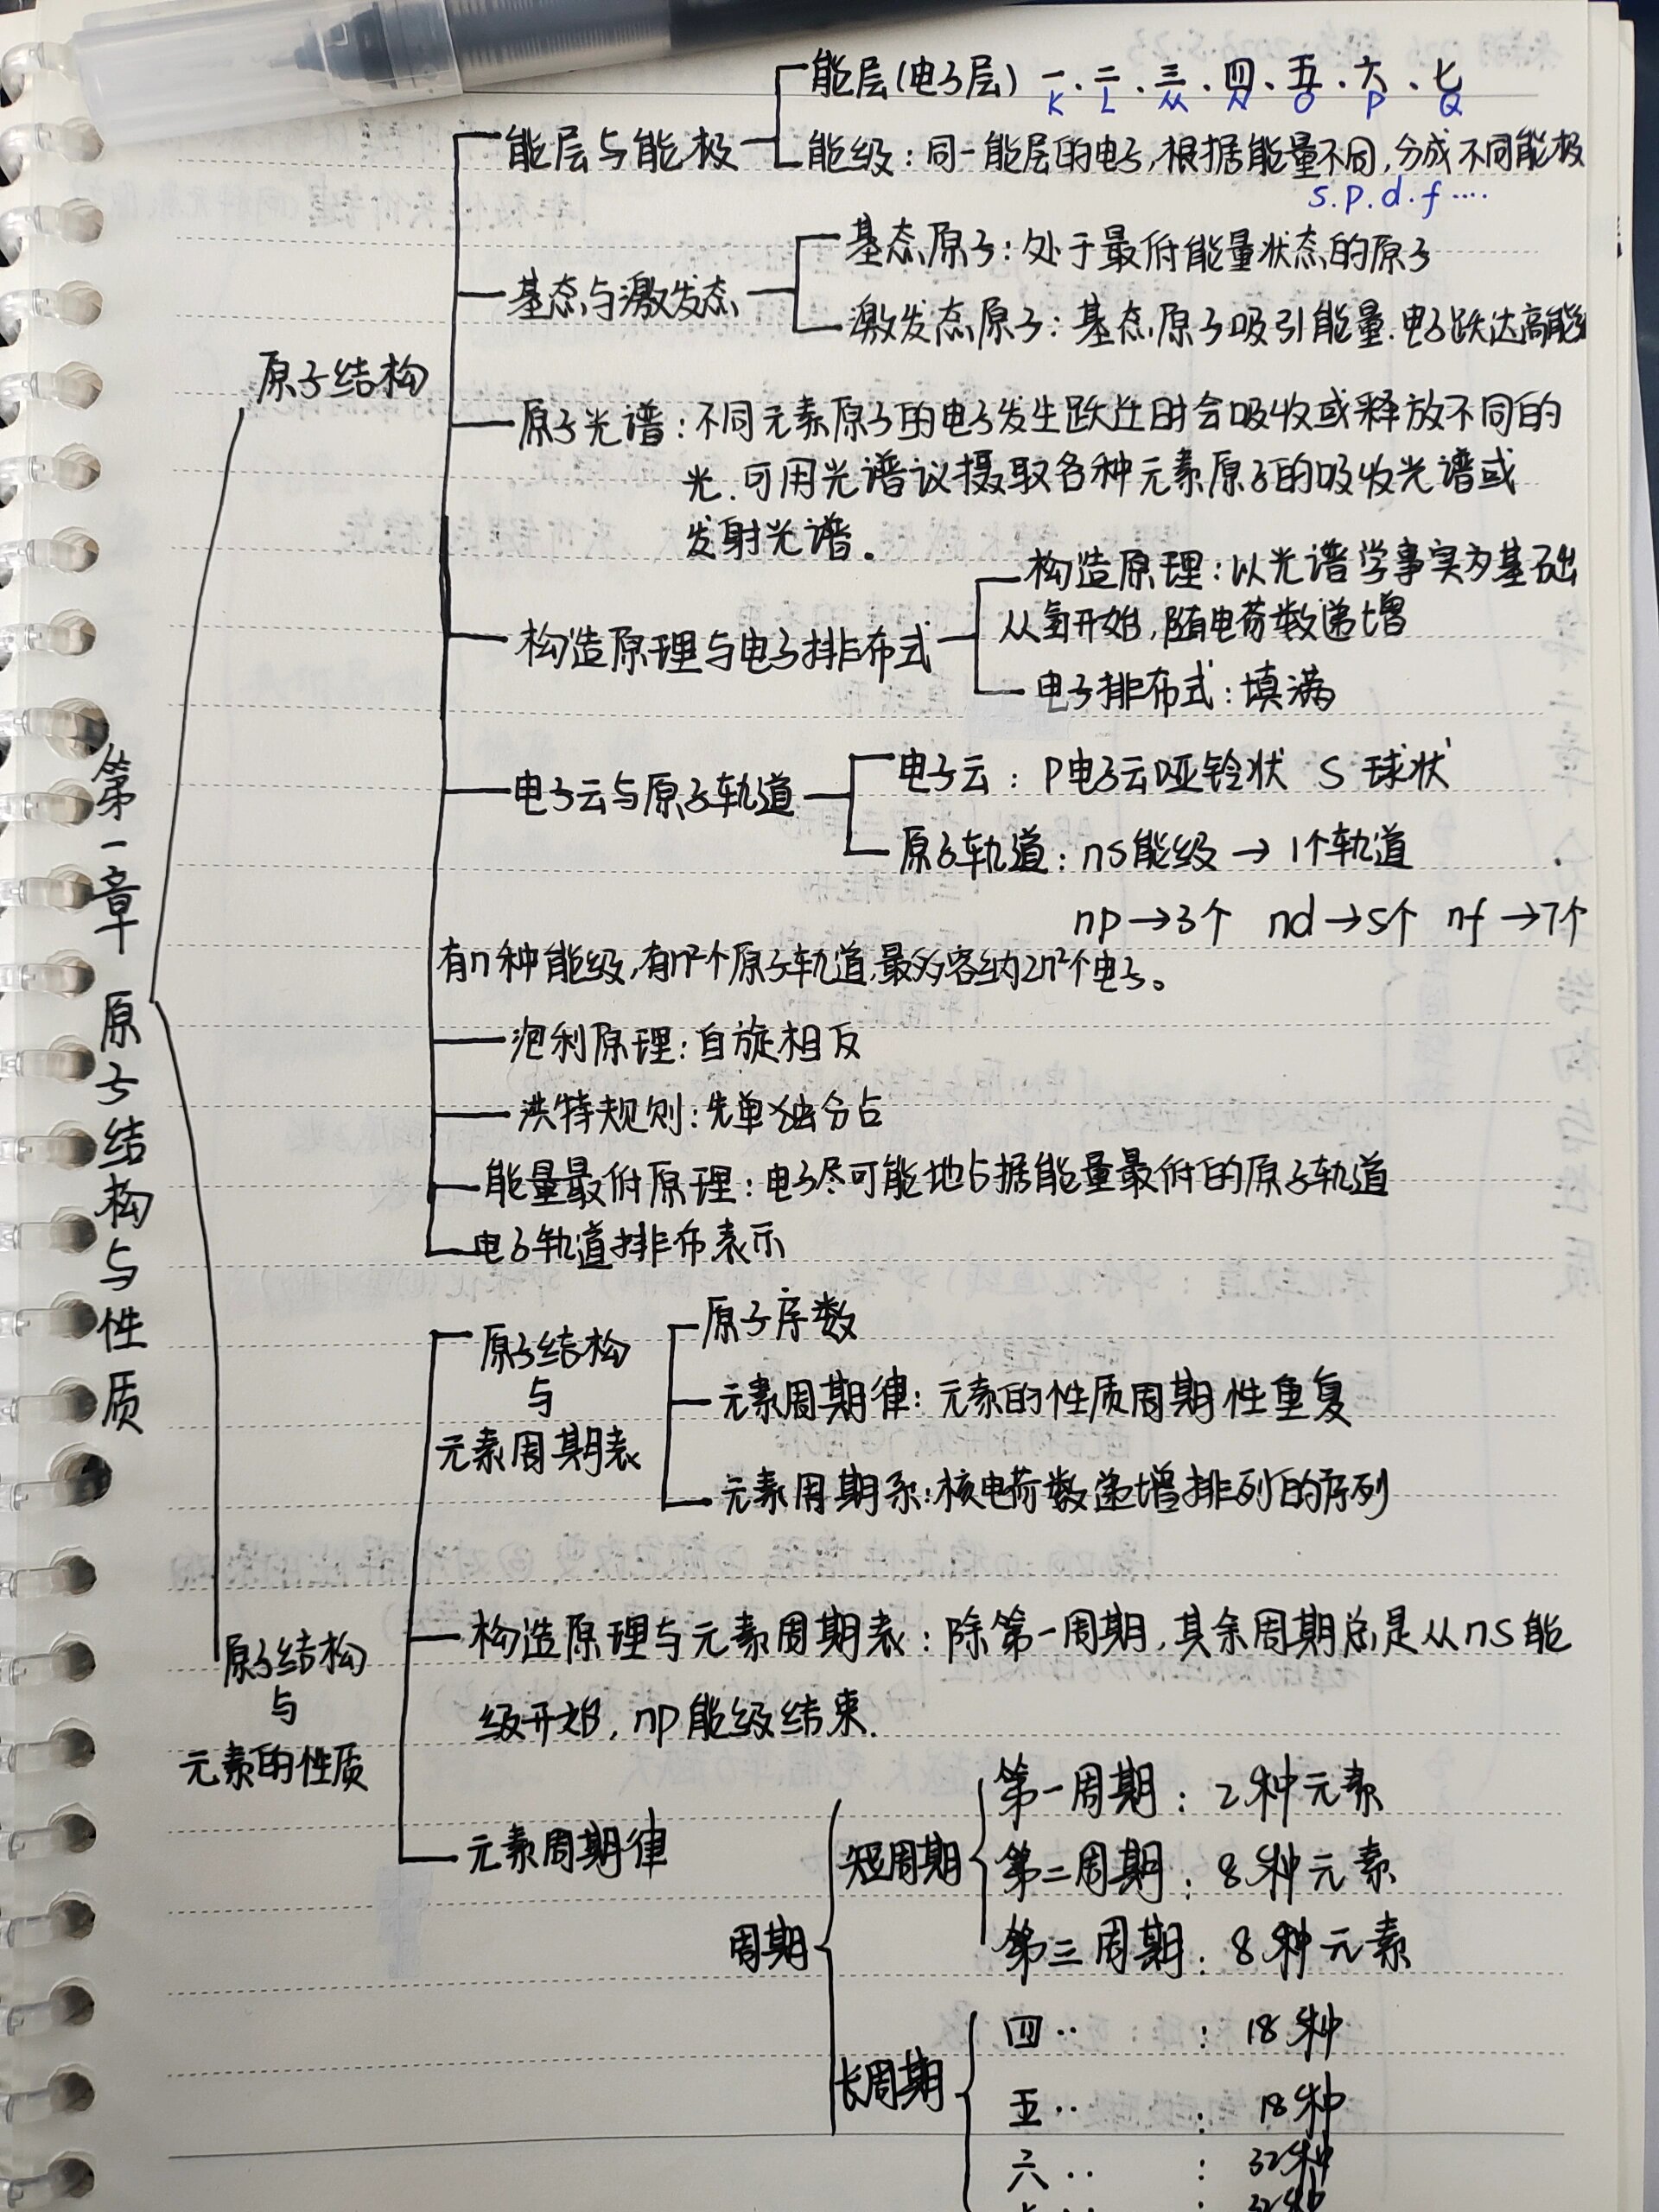 第一章 原子结构与性质
原子结构
能层与能极
能层(电子层) 一、二、三、四、五、六、七
K L M N O P Q
能级：同一能层的电子,根据能量不同,分成不同能极
s.p.d.f····
基态与激发态
基态原子：处于最低能量状态的原子
激发态原子：基态原子吸引能量.电子跃达高能
原子光谱：不同元素原子的电子发生跃迁时会吸收或释放不同的
光.可用光谱议摄取各种元素原子的吸收光谱或
发射光谱。
构造原理与电子排布式
构造原理：以光谱学事实为基础
从氢开始,随电荷数递增
电子排布式：填满
电子云与原子轨道
电子云：P电子云哑铃状 S 球状
原子轨道：ns能级→1个轨道
np→3个 nd→5个 nf→7个
有n种能级,有n²个原子轨道,最多容纳2n²个电子。
泡利原理：自旋相反
洪特规则：先单独分占
能量最低原理：电子尽可能地占据能量最低的原子轨道
电子轨道排布表示
原子结构
与
元素的性质
原子结构
与
元素周期表
原子序数
元素周期律：元素的性质周期性重复
元素周期系：核电荷数递增排列的序列
构造原理与元素周期表：除第一周期,其余周期总是从ns能
级开始,np能级结束.
元素周期律
周期
短周期
第一周期：2种元素
第二周期：8种元素
第三周期：8种元素
长周期
四‥ ：18种
五‥ ：18种
六‥ ：32种